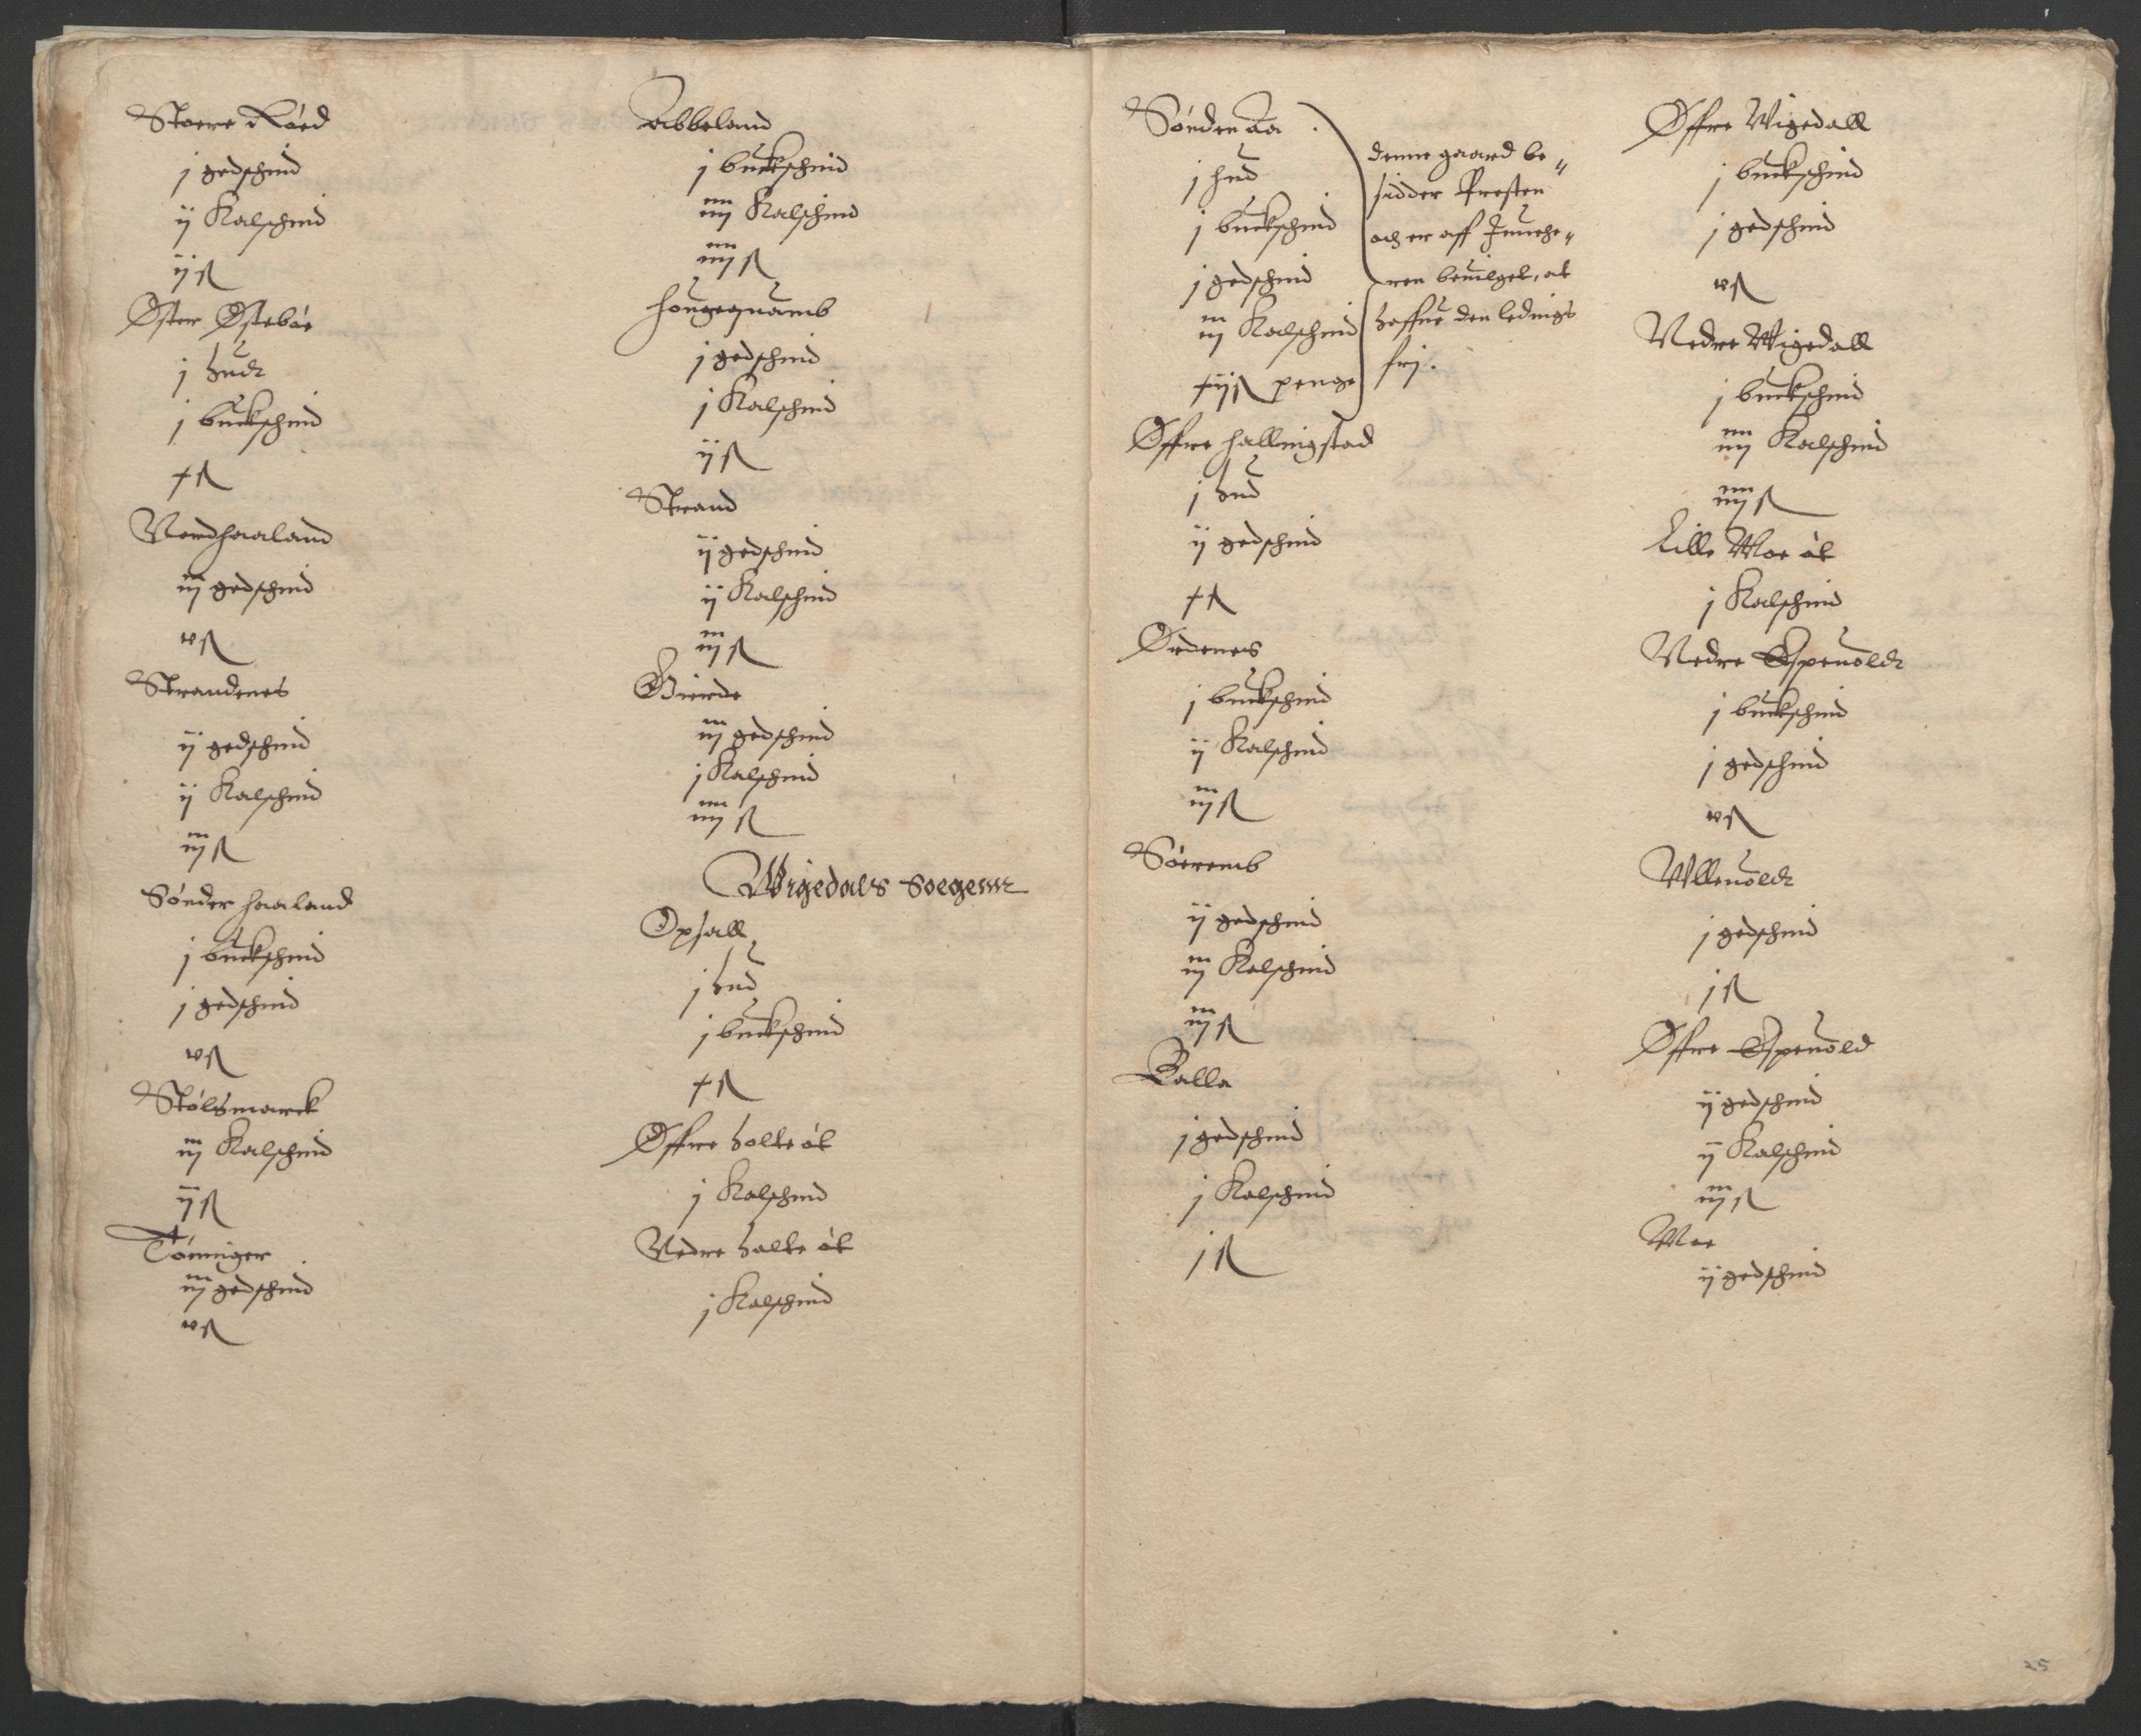 Stoere Røed
j gedschind
ij Kalfschind
ij ß
Øster Østebøe
j hudt
j buckschind
x ß
Nordhaaland
iij gedschind
v ß
Strandenes
ij gedschind
ij Kalfschind
iij ß
Sønder haaland
j buckschind
j gedschind
v ß
Stølsmarck
iij Kalfschind
ij ß
Tønniger
iij gedschind
v ß
Abbeland
j buckschind
iiij Kalfschind
iiij ß
Hougequamb
j gedschind
j Kalfschind
ij ß
Strand
ij gedschind
ij Kalfschind
iij ß
Gierde
iij gedschind
j Kalfschind
iiij ß
Wigedals Soegenn
Opsall
j hud
j buckschind
x ß
Øffre holte øt
j Kalfschind
Nedre holte øt
j Kalfschind
Sønden Aa
j hud
j buckschind
j gedschind
iij Kalfschind
xij ß penge
denne gaard be„
sidder Presten
och er aff Jenuhe„
ren beuilget, at
haffue den ledings
frj.
Øffre hallingstad
j hud
ij gedschind
x ß
Ørdenes
j buckschind
ij Kalfschind
iij ß
Søeremb
ij gedschind
iij Kalfschind
iij ß
Falla
j gedschind
j Kalfschind
j ß
Øffre Wigedall
j buckschind
j gedschind
v ß
Nedre Wigedall
j buckschind
iiij Kalfschind
iiij ß
Lille Moe øt
j Kalfschind
Nedre Espeuoldt
j buckschind
j gedschind
v ß
Vlleuoldt
j gedschind
j ß
Øffre Espeuold
ij gedschind
ij Kalfschind
iij ß
Moe
ij gedschind
25